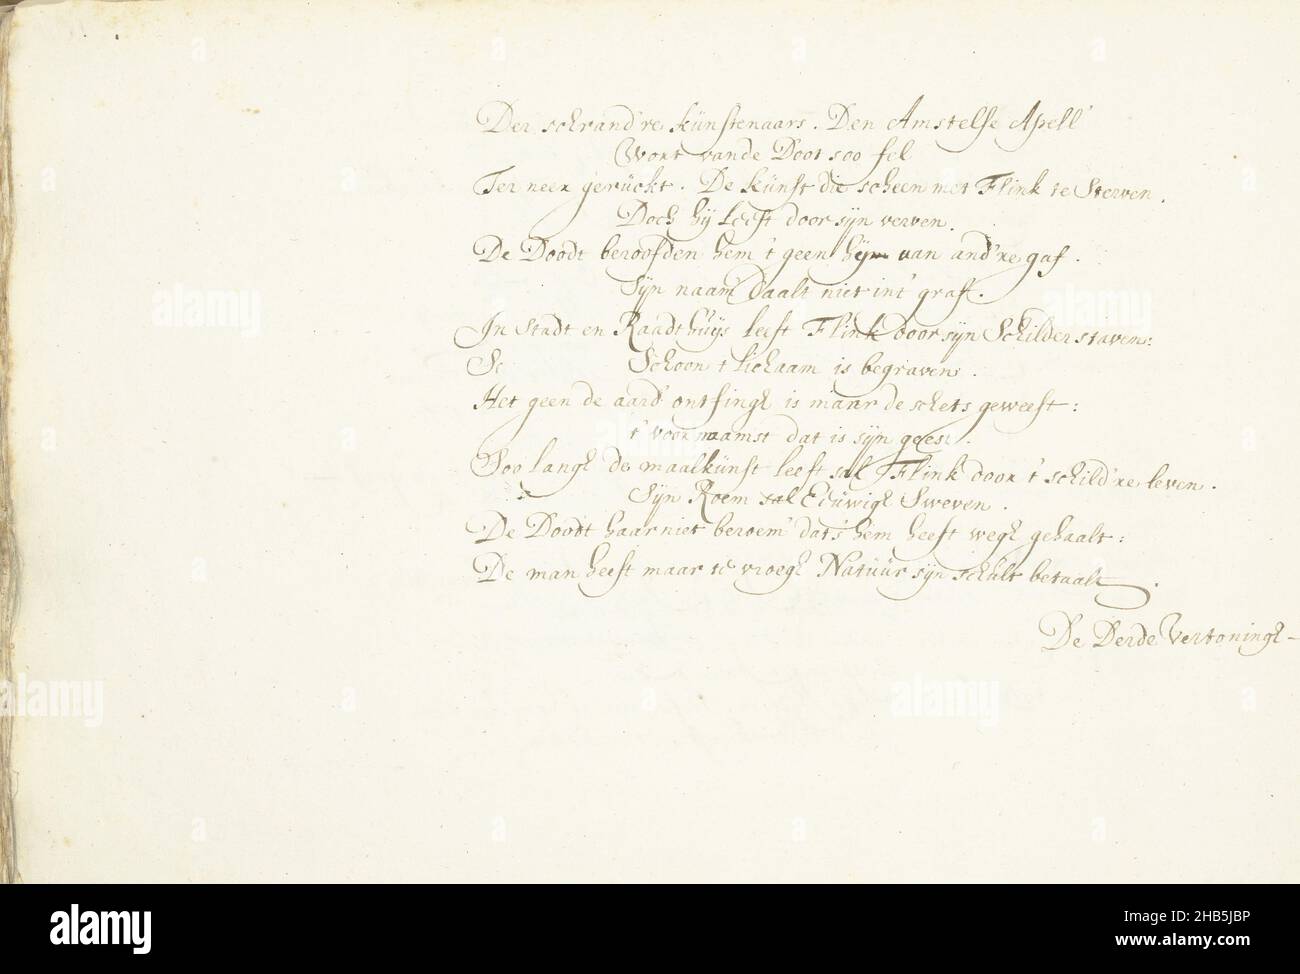 Der schrand're künstenaars. Den Amstelse Apell'
Wort vande Doot soo fel
Ter neer gerückt. De künst die scheen met Flink te Sterven.
Doch hij leeft door sijn verven.
De Doodt beroofden hem 't geen hij van and're gaf.
Sijn naam daalt niet in t' graf.
In Stadt en Raadthüijs leeft Flink door sijn Schilderstaven:
Sc Schoon t lichaam is begraven.
Het geen de aard' ontfingh is maar de schets geweest:
t' voornaamst dat is sijn geest.
Soo langh de maalkünst leeft sal Flink door 't schild're leven.
Sijn Roem sal Eeüwigh Sweven.
De Doodt haar niet beroem' dat s' hem heeft wegh gehaalt:
De man heeft maar te vroegh Natüür sijn schült betaalt.
De Derde Vertoningh-
alamy
Image ID: 2HB5JBP
www.alamy.com